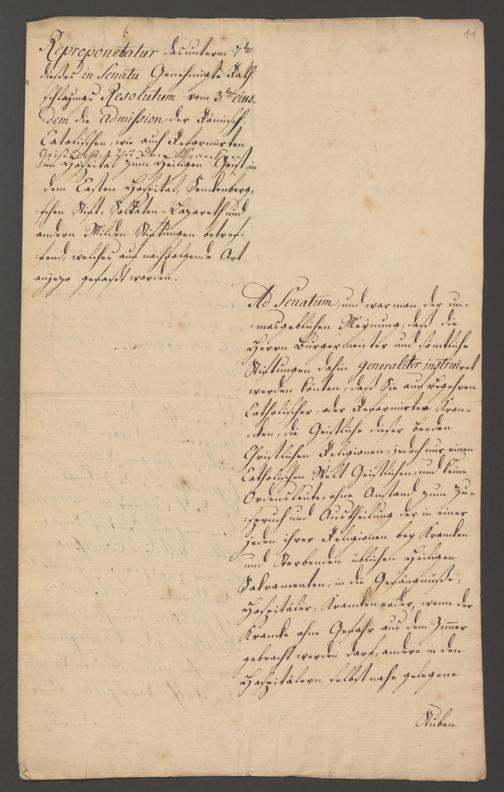 14
Reproponebatur das unterm 7ten
dieses in Senatu Genehmigte Rath-
schlagungs Resolutum vom 3ten ejus-
dem die admission der Römisch-
Catholischen, wie auch Reformirten
im Hospital zum Heiligen Geist, in
dem Casten Hospital, Senckenbergi-
schen Stift, Soldaten-Lazareth und
andern Milden Stiftungen betref-
fend, welches auf nachfolgende Art
anjezo gefasst worden.
Ad Senatum, und war man der un-
masgeblichen Meynung, dass die
Herrn Burgermeister und sämtliche
Stiftungen dahin generaliter instruiret
werden könten, dass Sie auf Begehren
Catholischer, oder Reformirter Kran-
cken, die Geistliche dieser beeden
Christlichen Religionen, jedoch nur einen
Catholischen Welt Geistlichen, und keine
Ordensleute, ohne Anstand zum Zu-
spruch und Austheilung der in einer
jeden ihrer Religionen bey Krancken
und Sterbenden üblichen Heiligen
Sakramenten, in die Gefängnisse,
Hospitäler, Krancken- oder, wenn der
Krancke ohne Gefahr aus dem Zimmer
gebracht werden darf, andere in den
Hospitälern selbst nahe gelegene
Stuben